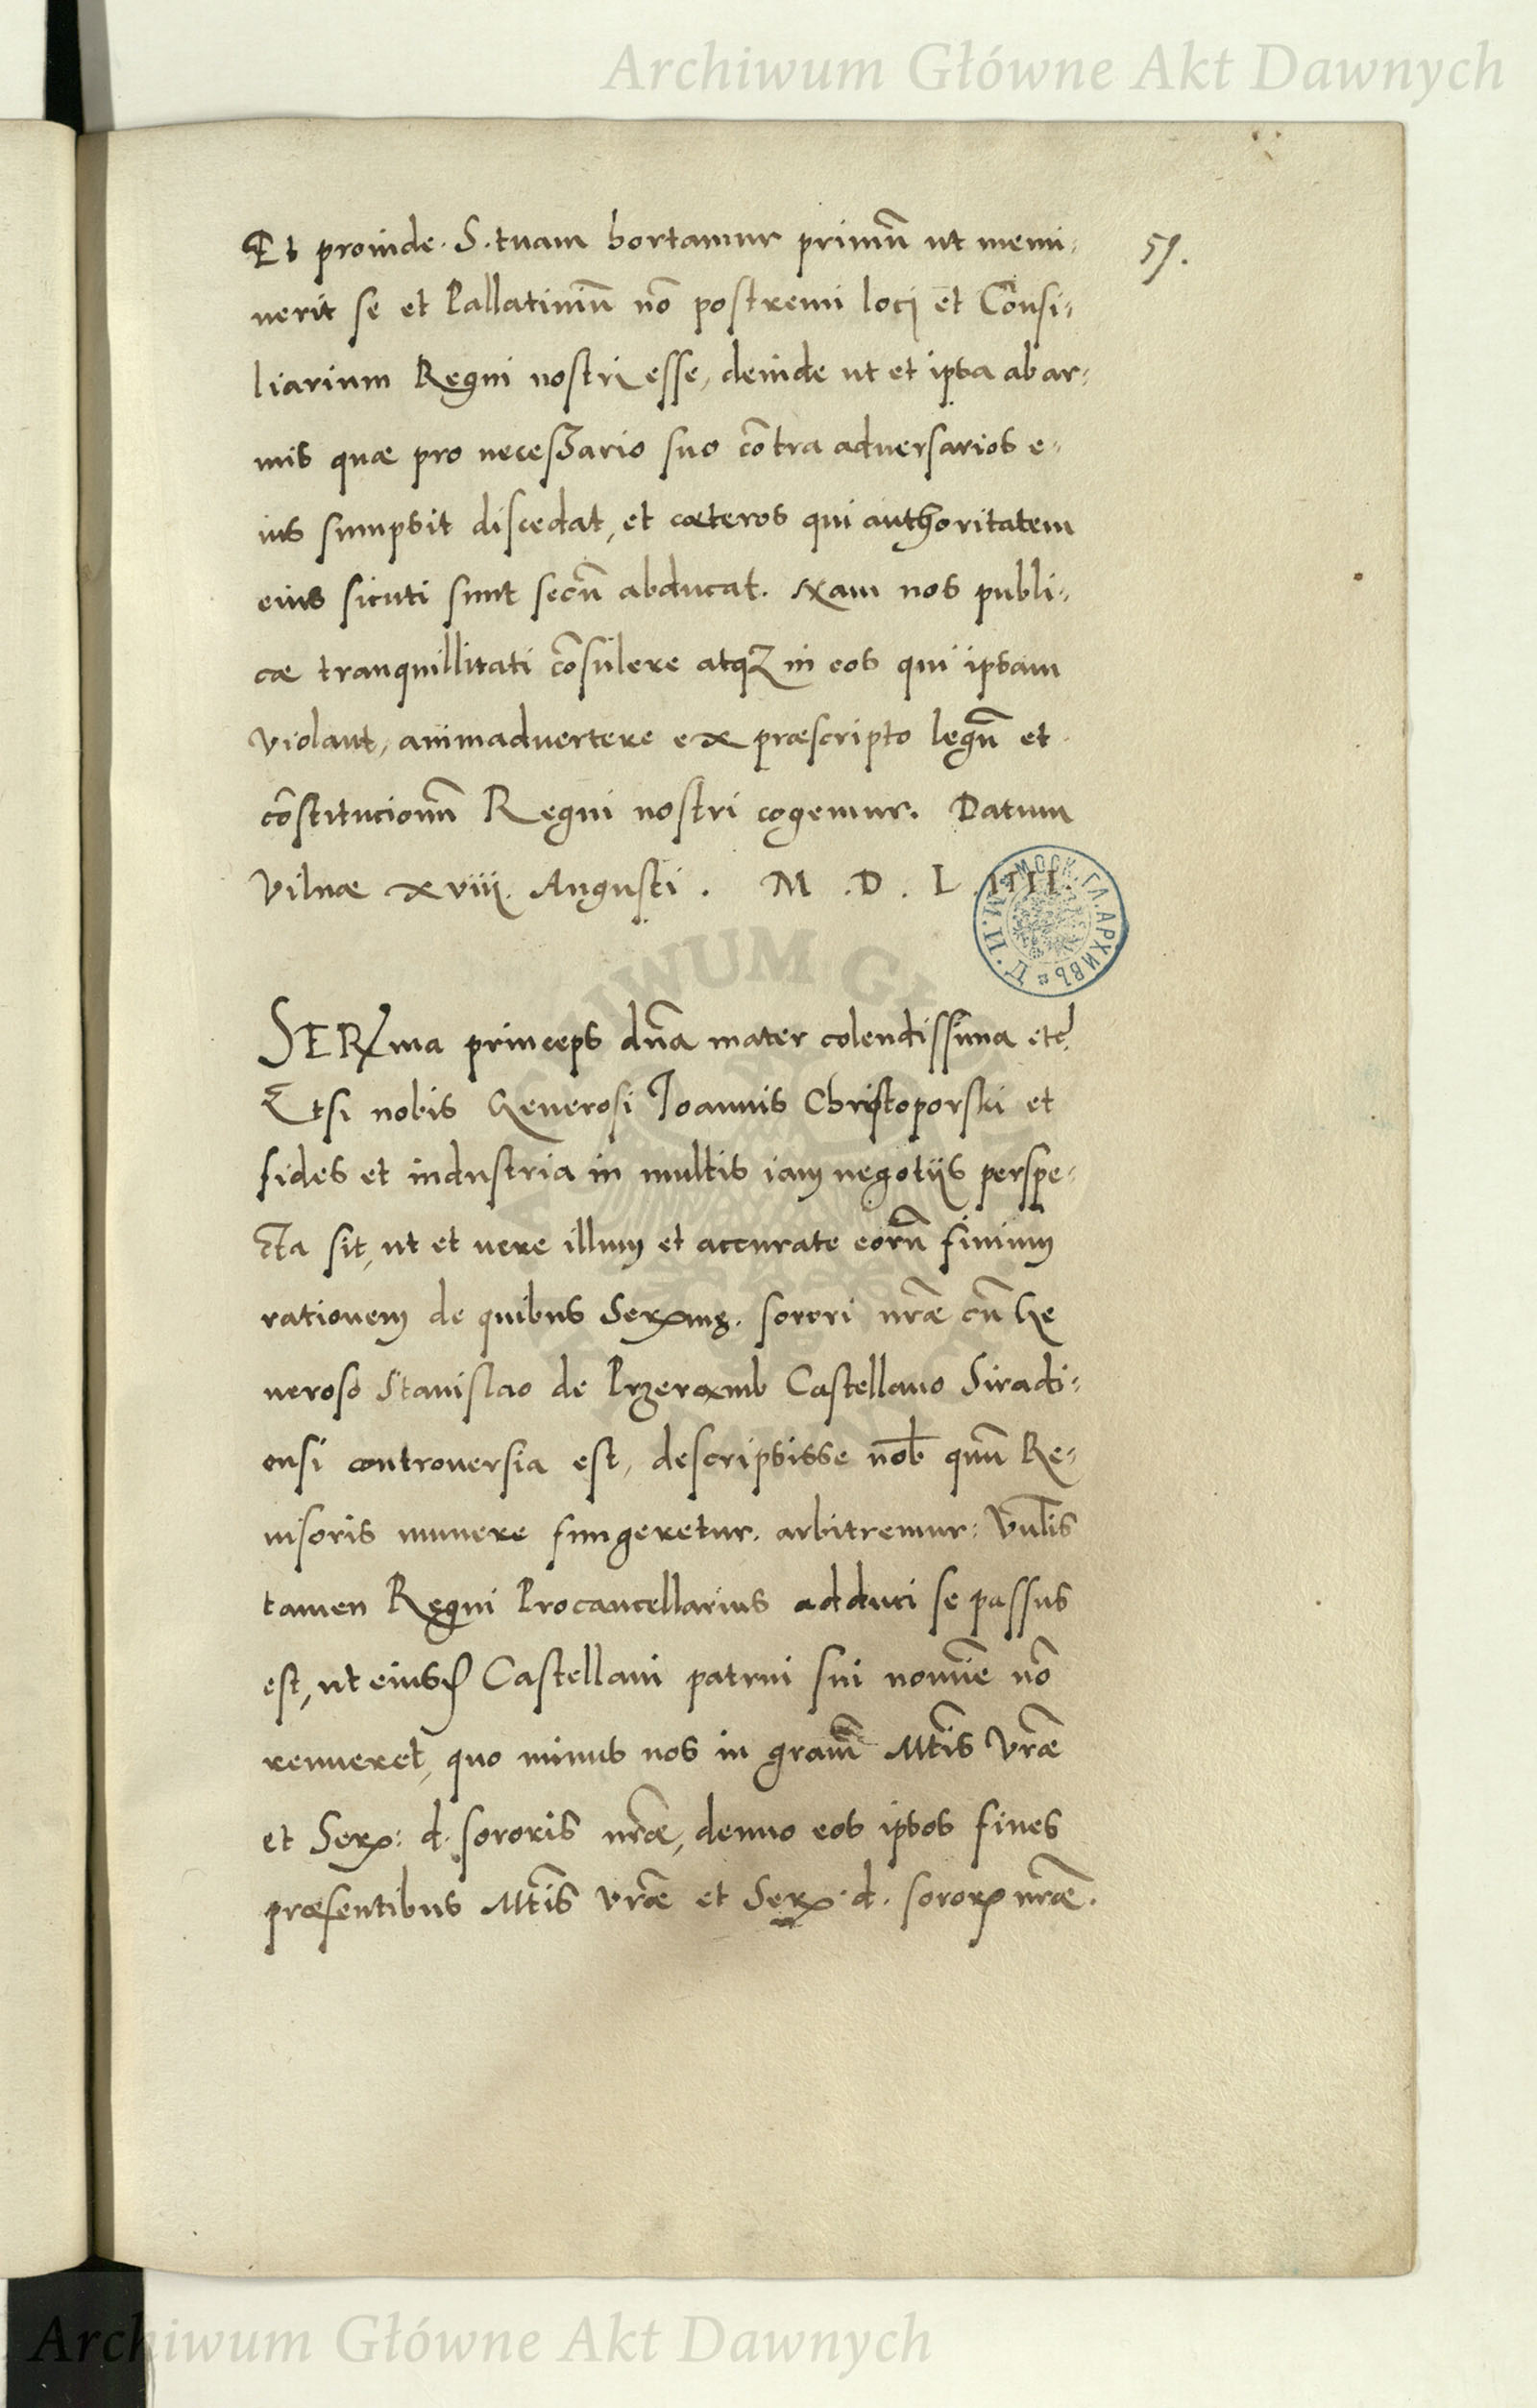 Archiwum Główne Akt Dawnych
57.
Et proinde. S. tuam hortamur primū ut memi:
nerit se et Pallatinum nō postremi loci et Consi:
liarium Regni nostri esse, deinde ut et ipsa ab ar:
mis quæ pro necessario suo cōtra adversarios e:
ius sumpsit discedat, et cæteros qui authoritatem
eius sicuti sunt secū abducat. Nam nos publi:
cæ tranquillitati cōsulere atqꝫ in eos qui ipsam
violant, animadvertere ex præscripto legū et
cōstitucionū Regni nostri cogemur. Datum
Vilnæ xviij. Augusti. M. D. L. IIII.
МОСК. ГЛ. АРХИВЪ
SERma princeps dn̄a mater colendissima etc̄
Etsi nobis Generosi Joannis Christoporski et
fides et industria in multis iam negotijs perspe:
cta sit, ut et vere illum et accurate eorū finium
rationem de quibus Serxmę. sorori nr̄æ cū Ge
neroso Stanislao de Przeramb Castellano Siradi:
ensi controversia est, descripsisse nob̄ quū Re:
visoris munere fungeretur. arbitremur: Vn̄lis
tamen Regni Procancellarius adduci se passus
est, ut eiusꝺ Castellani patrui sui nomīe nō
renueret, quo minus nos in gram̄ Mtis Vr̄æ
et Serx: d. sororis nr̄æ, denuo eos ipsos fines
præsentibus Mtis Vr̄æ et Serx. d. sororꝭ nr̄æ.
Archiwum Główne Akt Dawnych